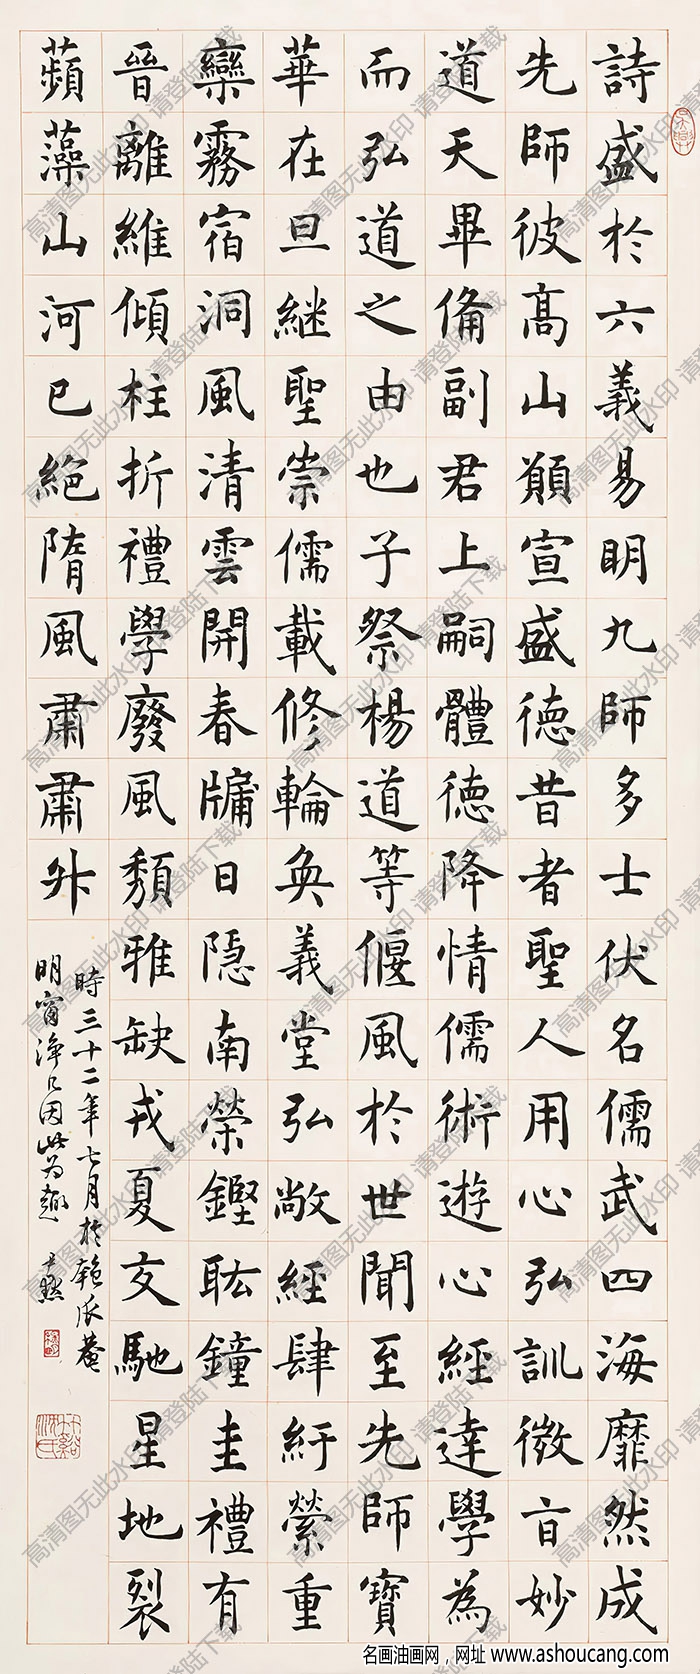 詩盛於六義易明九師多士伏名儒武四海靡然成
先師彼高山顚宣盛德昔者聖人用心弘訓微旨妙
道天畢備副君上嗣體德降情儒術遊心經達學為
而弘道之由也子祭楊道等偃風於世聞至先師寶
華在旦継聖崇儒載修輪奐義堂弘敞經肆紆縈重
欒霧宿洞風清雲開春牖日隠南榮鏗鍧鐘圭禮有
晉離維傾柱折禮學廢風頽雅缺戎夏交馳星地裂
蘋藻山河已絶隋風肅肅外
時三十二年七月於匏瓜菴
明窗淨几因此為趣 尹默
高清图无此水印 请登陆下载
名画油画网，网址 www.ashoucang.com